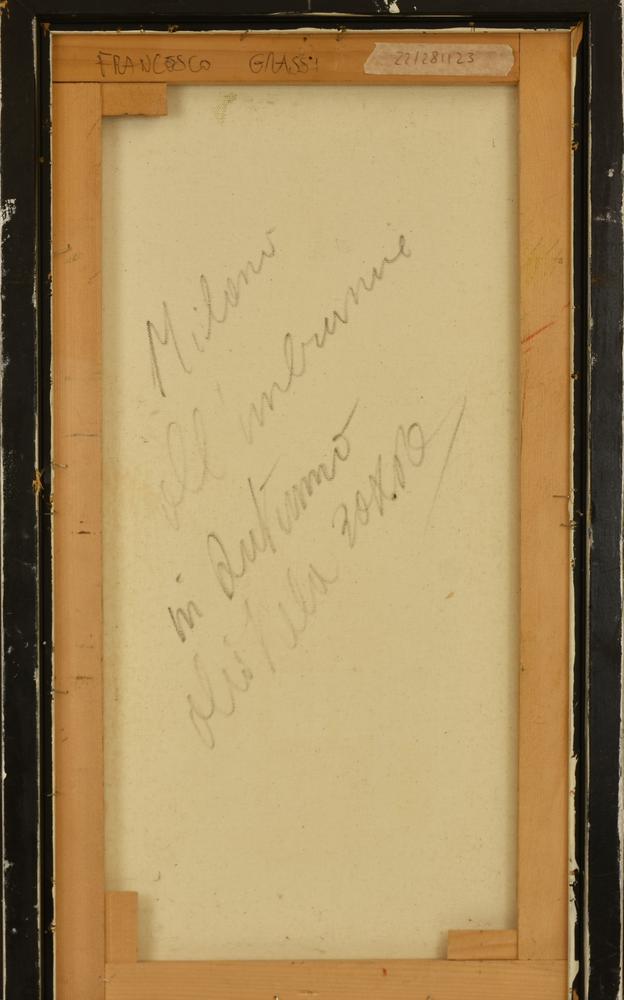 FRANCESCO GRASSI
22/281123
Milano
all'imbrunire
in autunno
olio tela 30x60